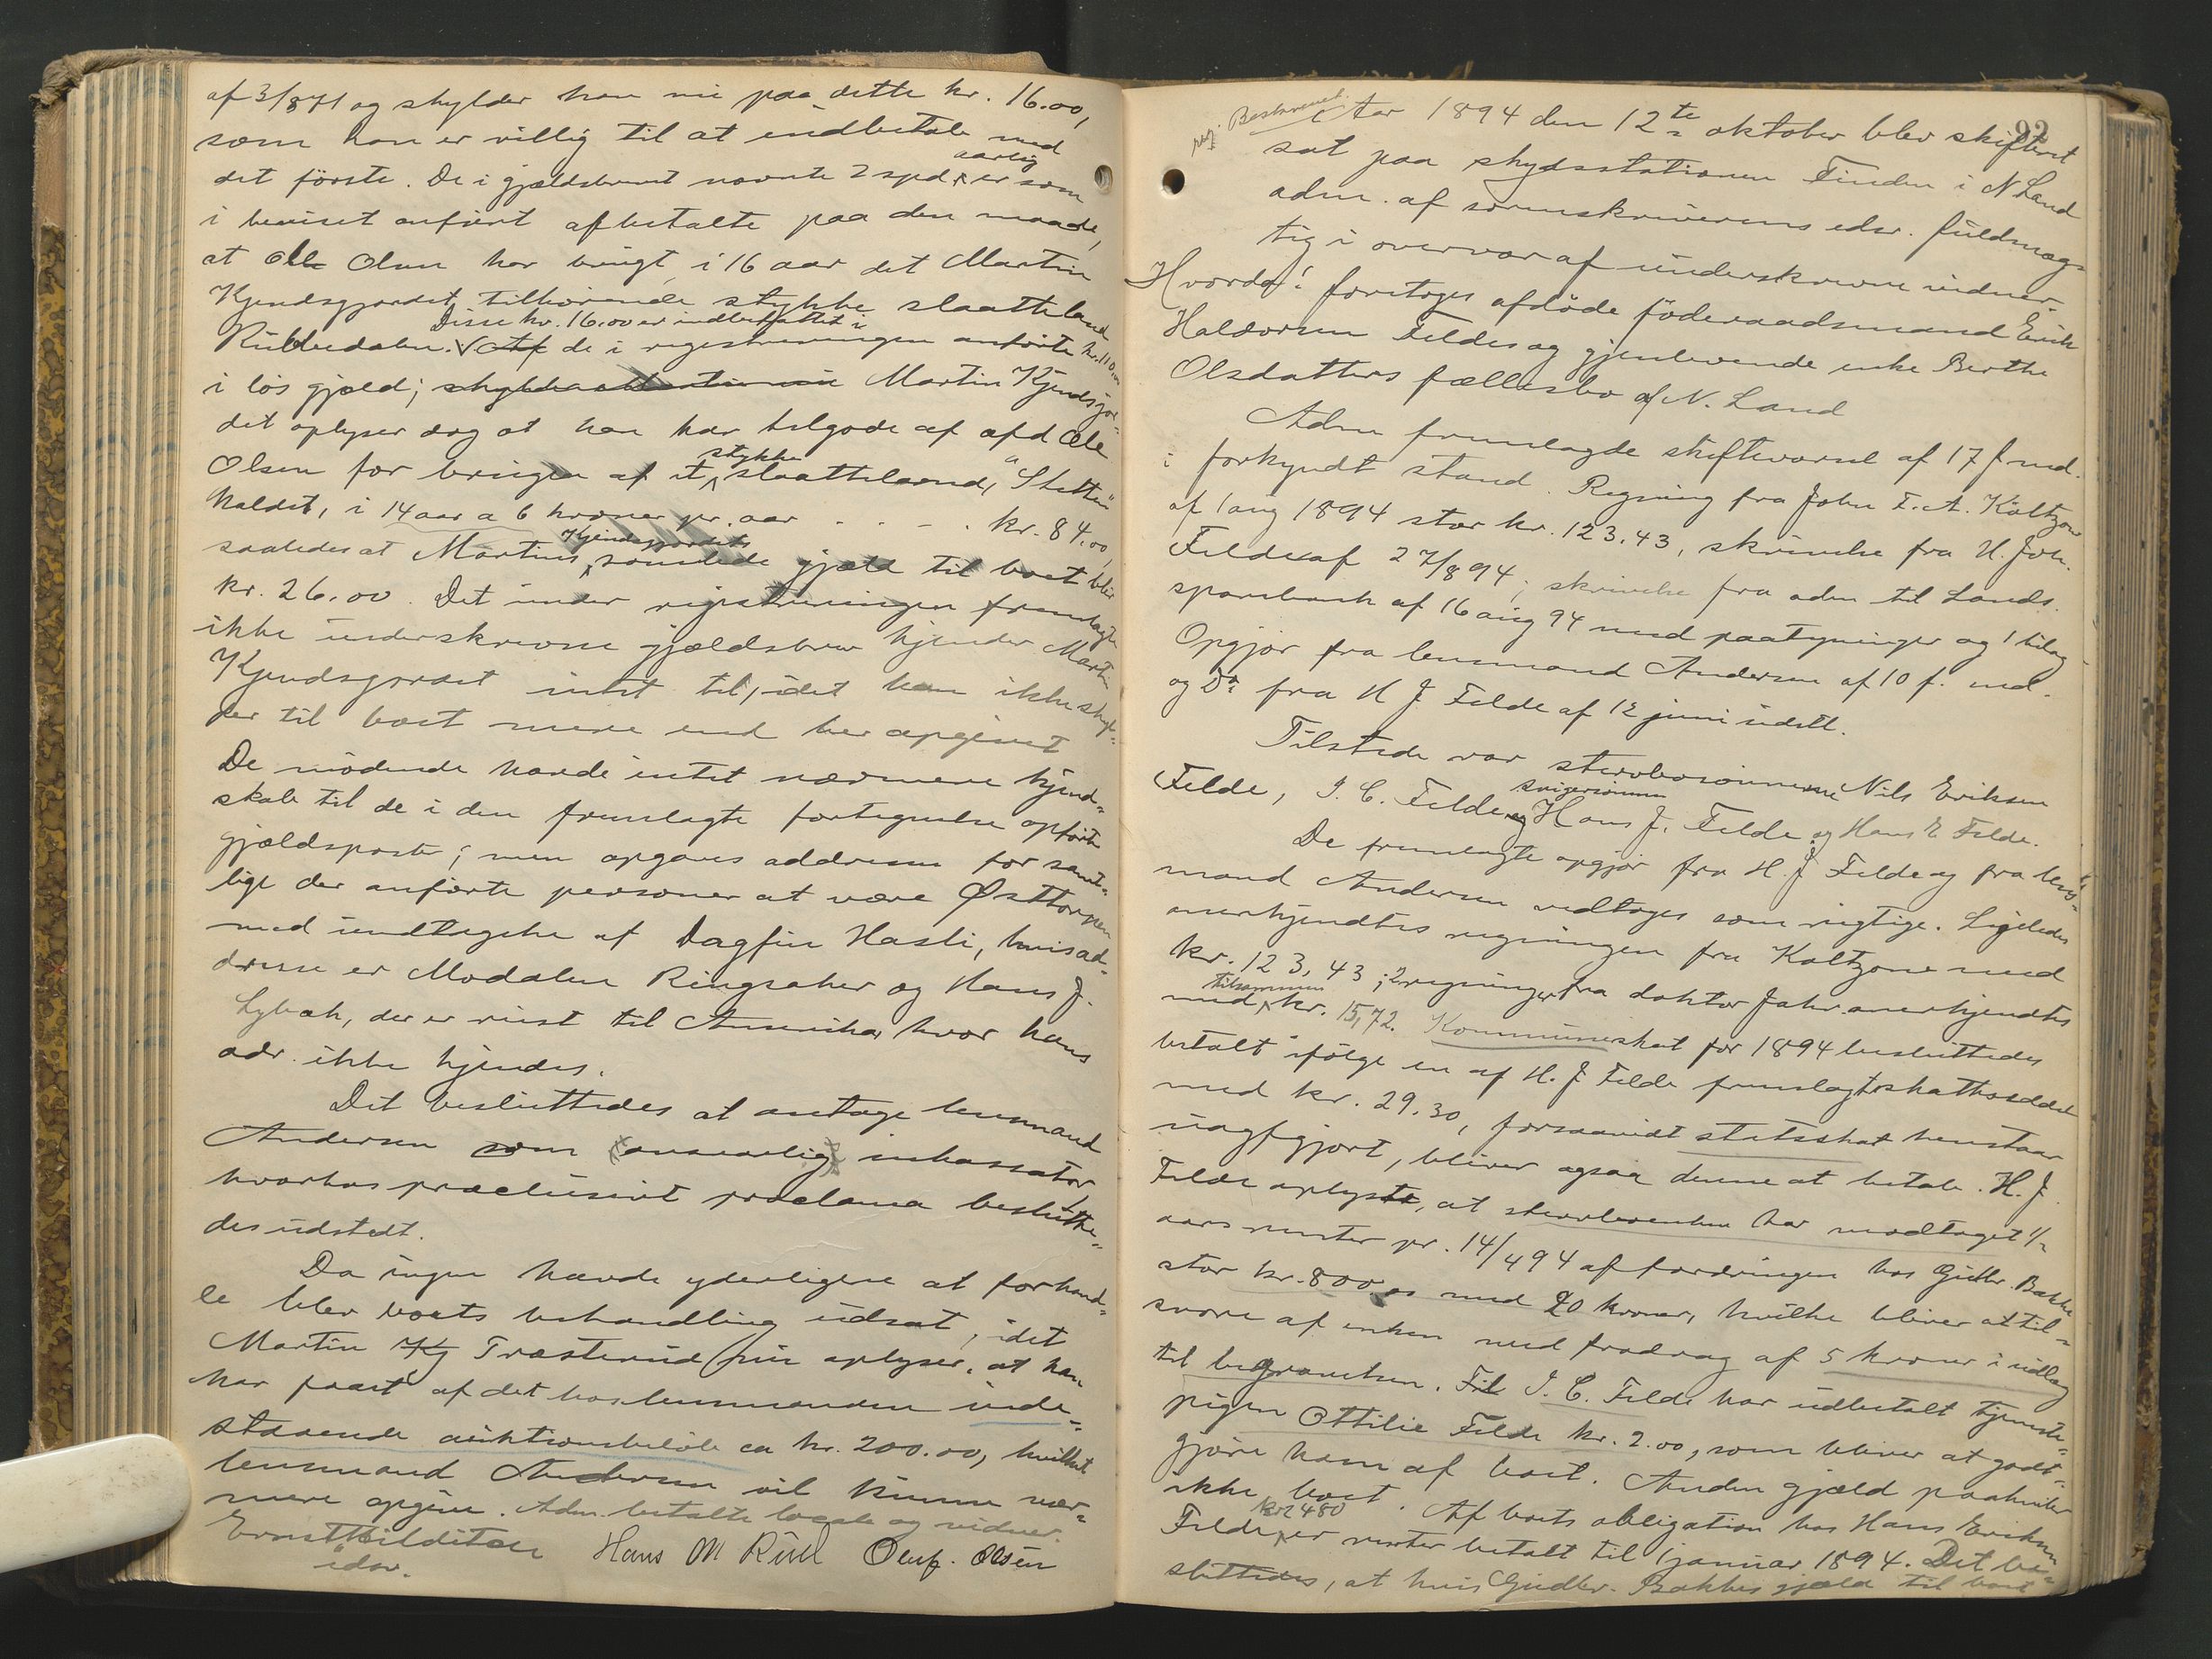 af 3/8 71 og skylder han nu paa dette kr. 16.00,
som han er villig til at indbetale med
det første. De i gjældsbrevet nævnte 2 spd. aarlig er som
i beviset anført afbetalte paa den maade,
at Ole Olsen har brugt i 16 aar det Martin
Kjendsgjordet tilhørende stykke slaatteland
Disse kr. 16.00 er indbefattet i
Rubbedalen. Af de i registreringen anførte kr. 110.00
i løs gjæld; Martin Kjendsgjor-
det oplyser dog at han har tilgode af afd Ole
Olsen for brugen af et stykke slaatteland, "Sletten"
kaldet, i 14 aar a 6 kroner pr. aar . . - . kr. 84.00,
saaledes at Martins Kjendsgjordets samlede gjæld til boet blir
kr. 26.00. Det under registreringen fremlagte
ikke underskrevne gjældsbrev kjender Martin
Kjendsgjordet intet til, idet han ikke skyl-
der til boet mere end her opgivet
De mødende havde intet nærmere kjend-
skab til de i den fremlagte fortegnelse opførte
gjældsposter; men opgaves addressen for samt-
lige der anførte personer at være Østtorpen
med undtagelse af Dagfin Hasli, hvis ad-
dresse er Modalen Ringsaker og Hans J.
Lybæk, der er reist til Amerika, hvor hans
adr. ikke kjendes.
Det besluttedes at antage lensmand
Andersen som (ansvarlig) inkassator
hvorhos præclusivt proclama beslutte-
des udstedt.
Da ingen havde yderligere at forhand-
le blev boets behandling udsat, idet
Martin Kj Træsterud jun oplyser, at han
har faaet af det hos lensmanden inde-
staaende auktionsbeløb ca kr. 200.00, hvilket
lensmand Andersen vil kunne nær-
mere opgive. Adm. betalte locale og vidner.
Ernst Hilditsen Hans M Rud Oluf. Olsen
edsv.
92
Beskrevet.
Aar 1894 den 12te oktober blev skifteret
sat paa skydsstationen Finden i N Land
adm. af sorenskriverens edsv. fuldmæg-
tig i overvær af underskrevne vidner
Hvorda! foretoges afdøde føderaadsmand Erik
Haldorsen Feldes og gjenlevende enke Berthe
Olsdatters fællesbo af N. Land
Adm fremlagde skiftevarsel af 17 f. md.
i forkyndt stand. Regning fra John F. A. Kaltzow
af 1 aug 1894 stor kr. 123.43, skrivelse fra H. Joh.
Felde af 27/8 94; skrivelse fra adm til Lands
sparebank af 16 aug 94 med paategninger og 1 bilag
Opgjør fra lensmand Andersen af 10 f. md.
og Do fra H J. Felde af 12 juni sidstl.
Tilstede var sterbosønnerne Nils Eriksen
Felde, J. C. Felde og svigersønnen Hans J. Felde og Hans E Felde.
De fremlagte opgjør fra H. J Felde og fra lens-
mand Andersen vedtoges som rigtige. Ligeledes
anerkjendtes regningen fra Kaltzow med
kr. 123,43; 2 regninger fra doktor Jahr anerkjendtes
med tilsammen kr. 15,72. Kommuneskat for 1894 besluttedes
betalt ifølge en af H. J Felde fremlagt skatteseddel
med kr. 29.30, forsaavidt statsskat henstaar
uopgjort, bliver ogsaa denne at betale. H. J.
Felde oplyste, at sterboenken har modtaget 1/2
aars renter pr. 14/4 94 af fordringen hos Gudbr. Bakke
stor kr. 800.00 med 20 kroner, hvilke bliver at til-
svare af enken med fradrag af 5 kroner i udlæg
til begravelsen. Til J. C. Felde har udbetalt tjeneste-
pigen Ottilie Felde kr. 2.00, som bliver at godt-
gjøre ham af boet. Anden gjæld paahviler
ikke boet. Af boets obligation hos Hans Eriksen
Felde kr 2480 er renter betalt til 1 januar 1894. Det be-
sluttedes, at hvis Gudbr. Bakkes gjæld til boet